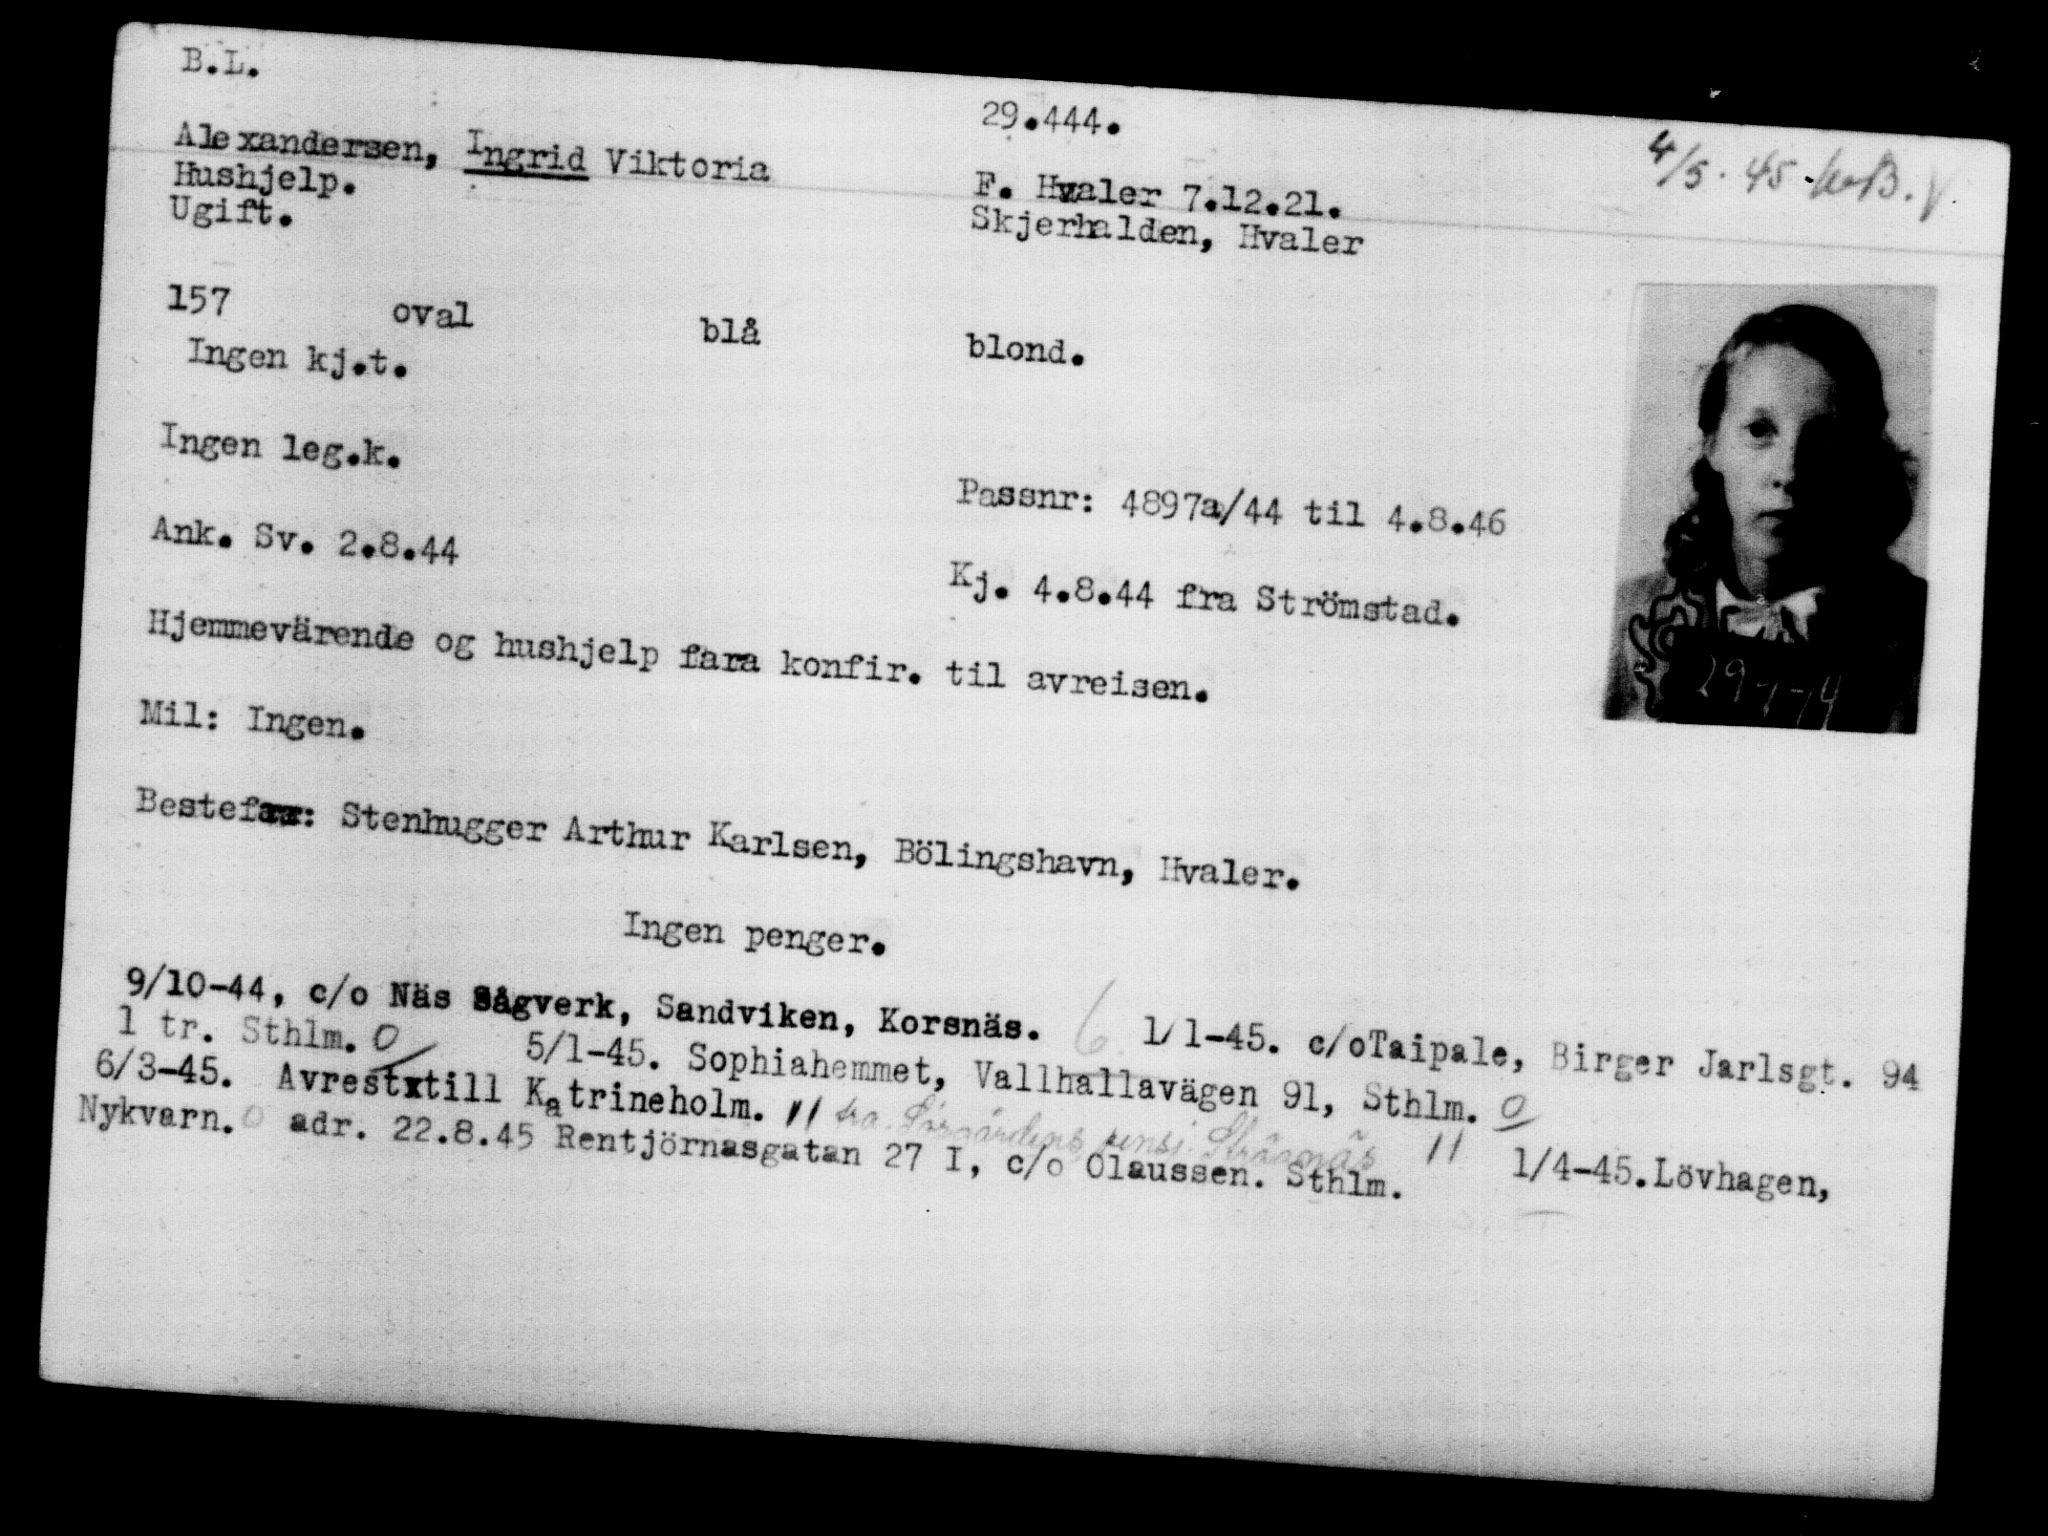 B.L.
29.444.
4/5. 45
Alexandersen, Ingrid Viktoria
F. Hvaler 7.12.21.
Hushjelp.
Skjerhalden, Hvaler
Ugift.
157 oval blå blond.
Ingen kj.t.
Ingen leg.k.
Passnr: 4897a/44 til 4.8.46
Ank. Sv. 2.8.44
Kj. 4.8.44 fra Strömstad.
Hjemmevärende og hushjelp fara konfir. til avreisen.
Mil: Ingen.
Bestefar: Stenhugger Arthur Karlsen, Bölingshavn, Hvaler.
Ingen penger.
9/10-44, c/o Näs Sågverk, Sandviken, Korsnäs. 1/1-45. c/oTaipale, Birger Jarlsgt. 94
1 tr. Sthlm. 5/1-45. Sophiahemmet, Vallhallavägen 91, Sthlm.
6/3-45. Avrestxtill Katrineholm. 1/4-45.Lövhagen,
Nykvarn. adr. 22.8.45 Rentjörnasgatan 27 I, c/o Olaussen. Sthlm.